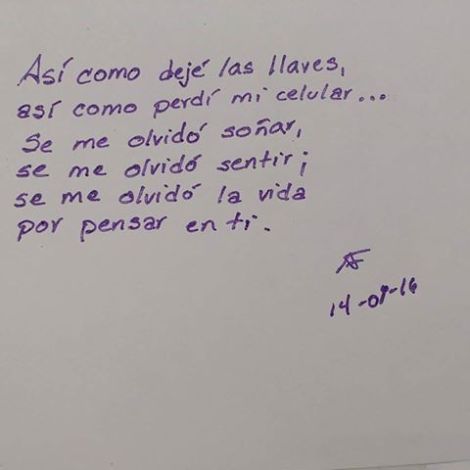 Así como dejé las llaves,
así como perdí mi celular...
Se me olvidó soñar,
se me olvidó sentir;
se me olvidó la vida
por pensar en ti.